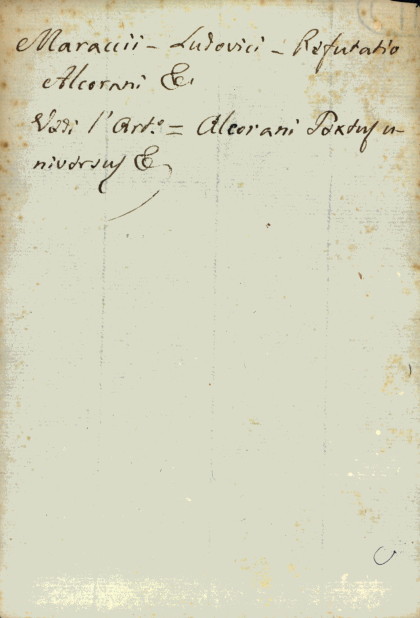 Maraccii - Ludovici - Refutatio
Alcorani &c.
Vedi l'Art.º = Alcorani Textus u-
niversus &c